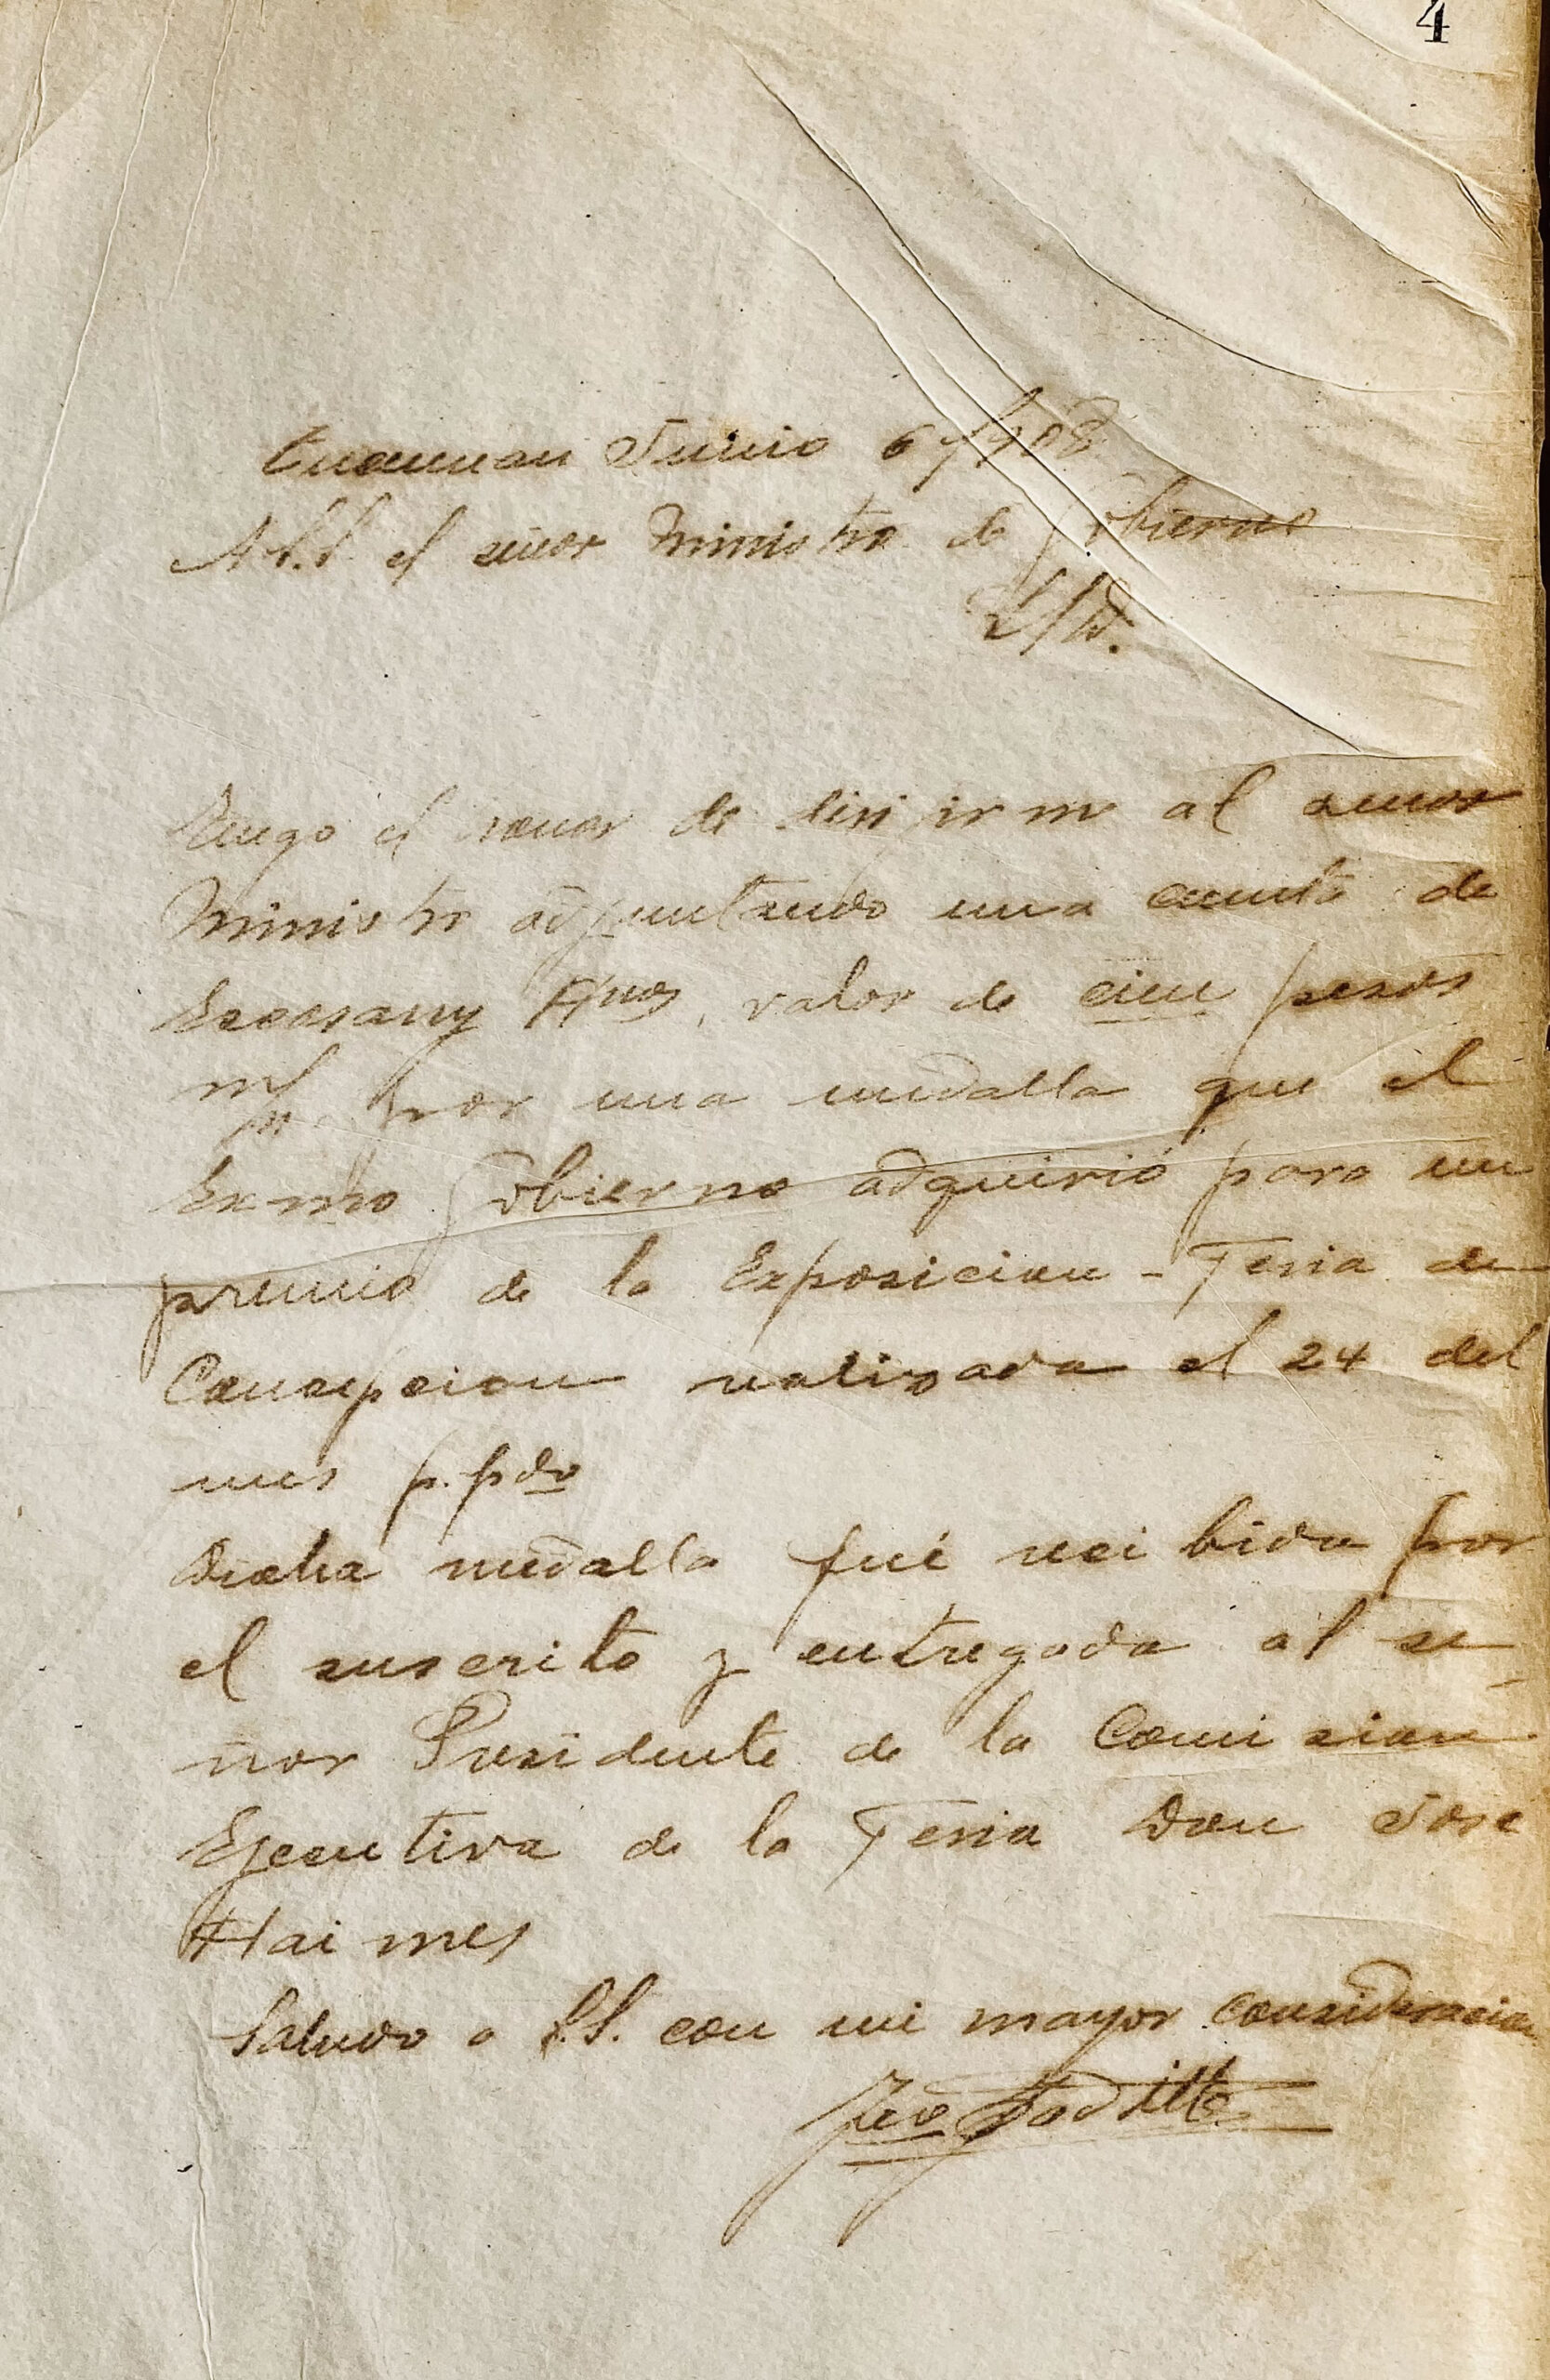 4
Tucuman Junio 6/908
A S.S. el señor Ministro de Gobierno
S/D.
Tengo el honor de dirijirme al señor
Ministro adjuntando una cuenta de
Escasany Hnos, valor de cien pesos
m/n. por una medalla que el
Exmo Gobierno adquirió para un
premio de la Exposicion - Feria de
Concepcion realizada el 24 del
mes p.pdo
Dicha medalla fué recibida por
el suscrito y entregada al se
ñor Presidente de la Comision
Ejecutiva de la Feria Don Jose
Haimes
Saludo a S.S. con mi mayor consideracion